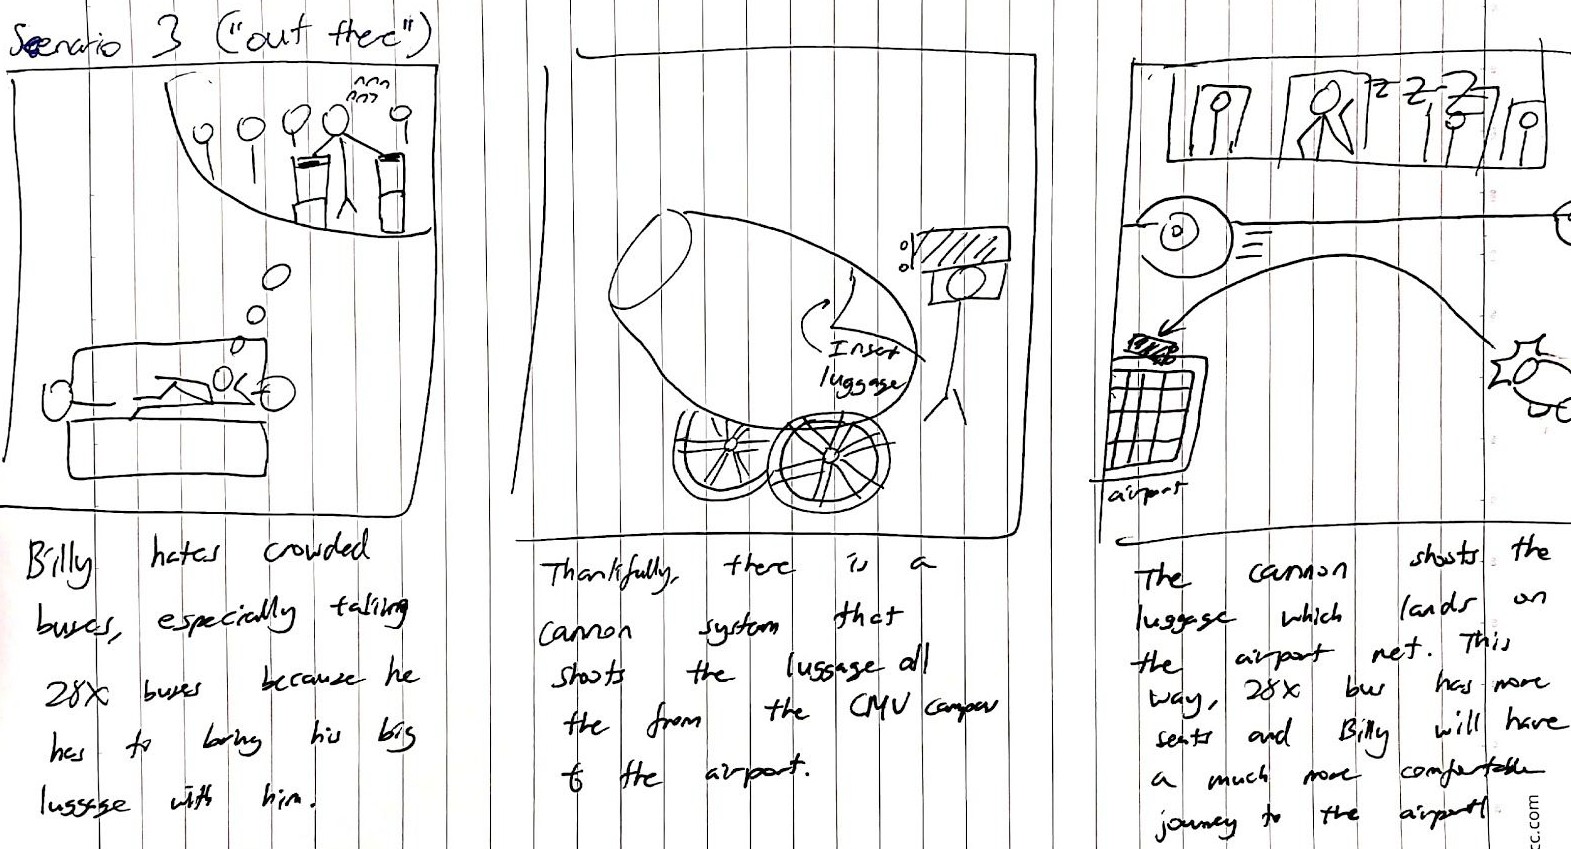 Scenario 3 ("out there")
Billy hates crowded
buses, especially taking
28X buses because he
has to bring his big
luggage with him.
Insert
luggage
Thankfully, there is a
cannon system that
shoots the luggage all
the from the CMU campus
to the airport.
z z z
airport
The cannon shoots the
luggage which lands on
the airport net. This
way, 28X bus has more
seats and Billy will have
a much more comfortable
journey to the airport!
cc.com